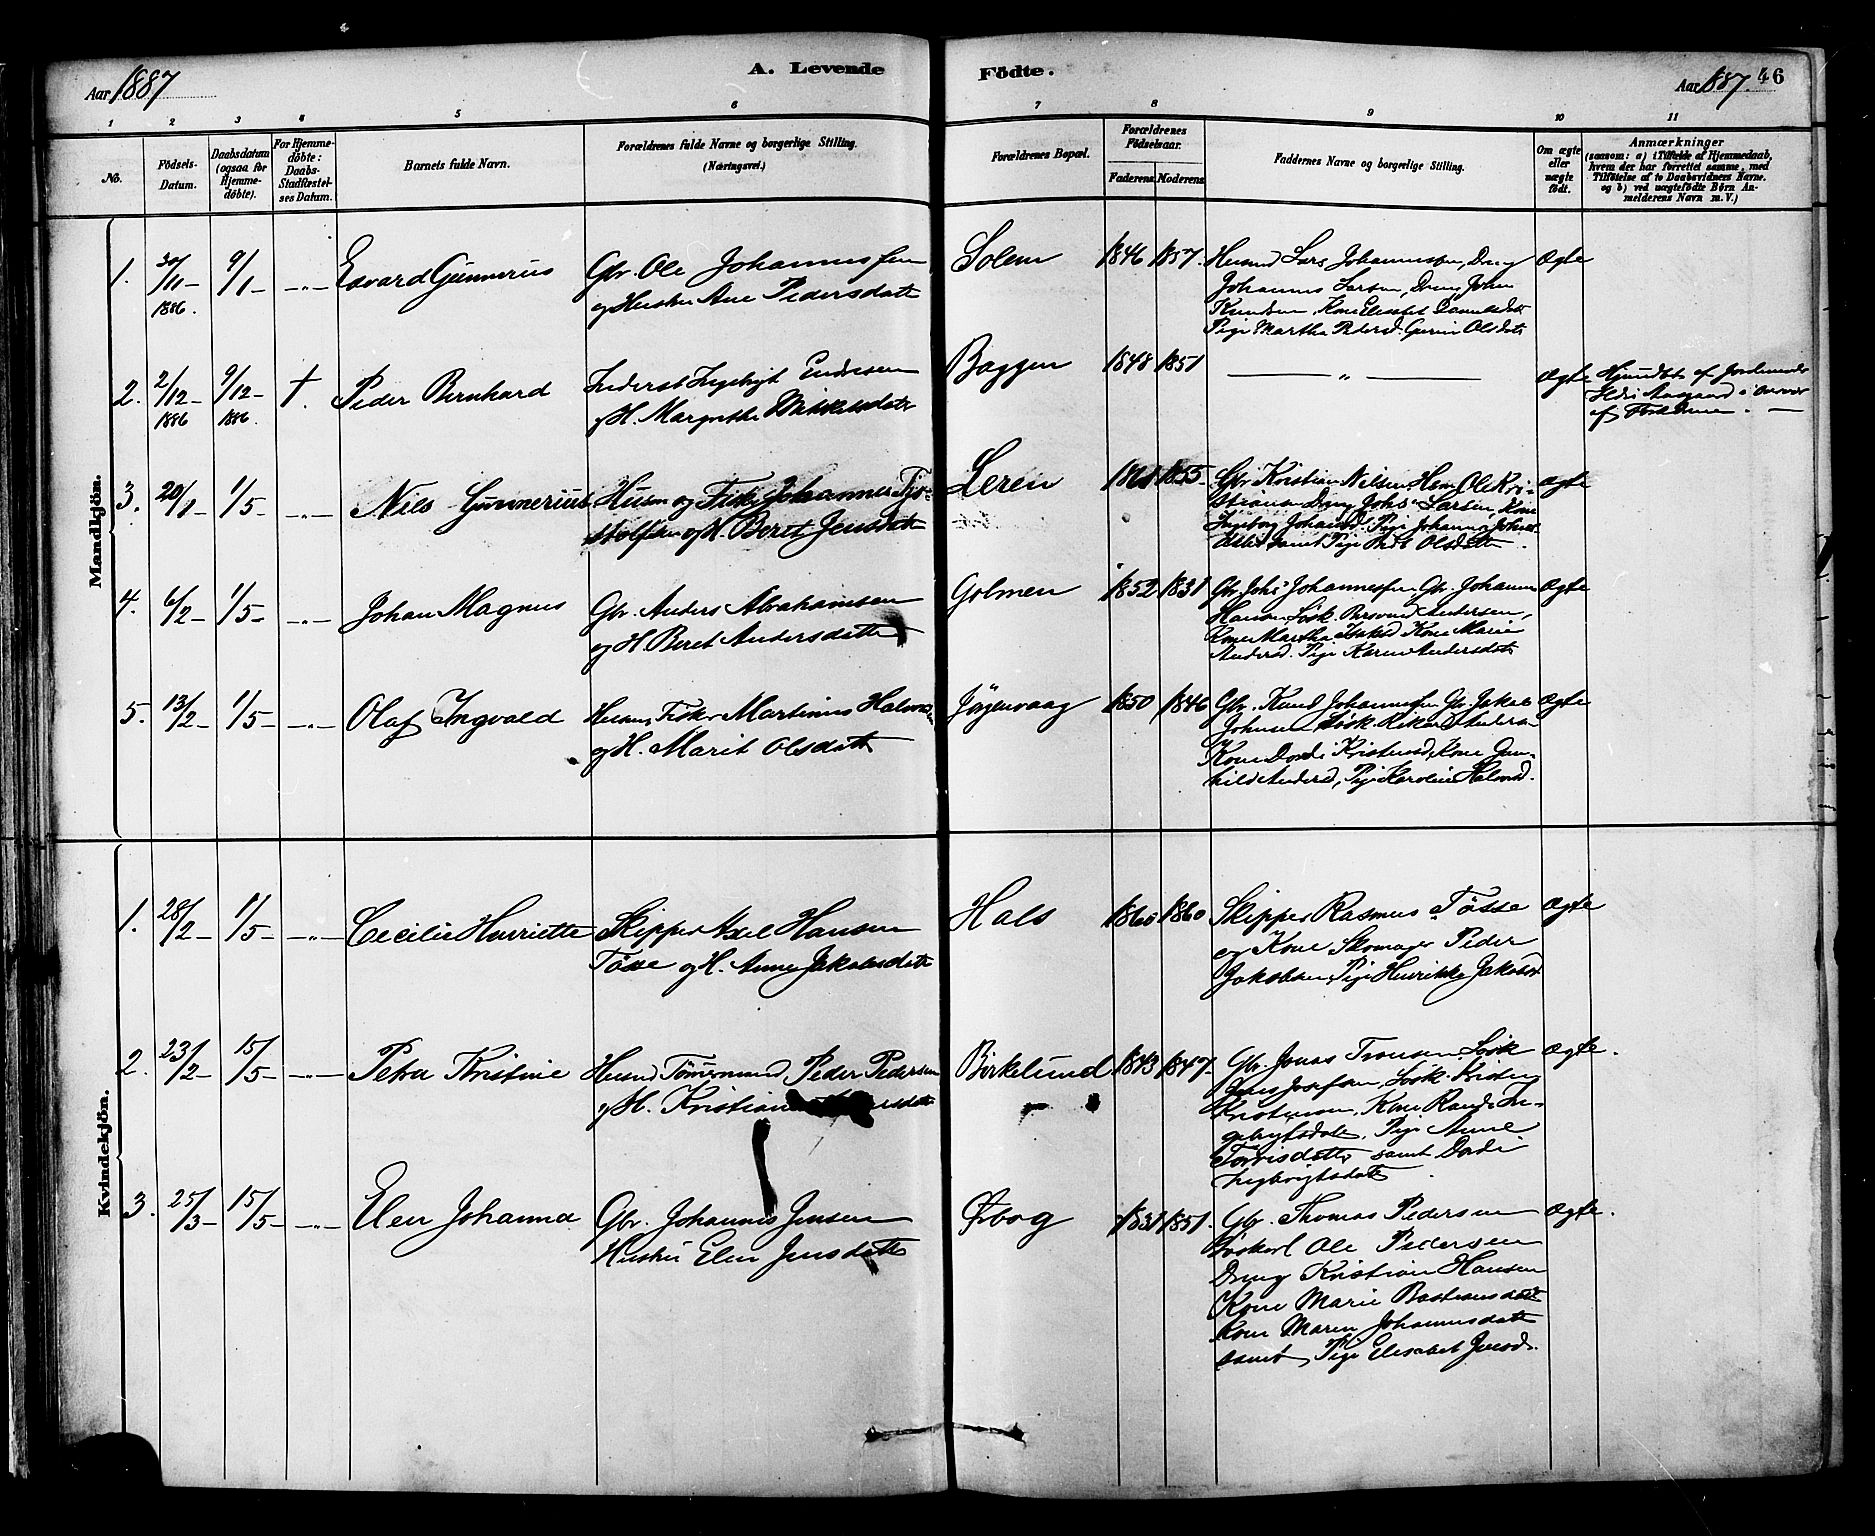 Aar 1887
A. Levende
Födte.
Aar 1887.
46
1 2 3 4 5 6 7 8 9 10 11
No.
Födsels-
Datum.
Daabsdatum
(ogsaa for
Hjemme-
döbte).
For Hjemme-
döbte:
Daabs-
Stadfæstel-
ses Datum.
Barnets fulde Navn.
Forældrenes fulde Navne og borgerlige Stilling.
(Næringsvei.)
Forældrenes Bopæl.
Forældrenes
Födselsaar.
Faderens. Moderens.
Faddernes Navne og borgerlige Stilling.
Om ægte
eller
uægte
födt.
Anmærkninger
(saasom: a) i Tilfælde af Hjemmedaab,
hvem der har forrettet samme, med
Tilföielse af to Daabsvidners Navne.
og b) ved uægtefödte Börn An-
melderens Navn m. V.)
Mandkjön.
1.
30/11-
1886.
9/1-
-"-
Edvard Gunnerius
Gbr. Ole Johannesen
og Hustru Ane Pedersdatt
Solem
1846
1857.
Husmd Lars Johannessen, Dreng
Johannes Larsen, Dreng John
Knudsen, Kone Elisabet
Pige Martha Pedersd. Olsdatt
Ægte
2.
2/12-
1886
9/12-
1886.
†.
Peder Bernhard
Inderst Ingebrigt Endresen
og H. Margrethe
Baggen
1848
1851
— " —
Ægte
Hjemdbt af Jordemoder
Aasgaard i
af Forældrene. —
3.
20/1-
1/5-
-"-
Nils Gunnerius
Husm og Fisk. Johannes Tjo-
stolfsen og H. Beret Jensdatt
Leren
1855
Gbr Kristian Nilsen, Ole Kri-
stiansen Dreng Johs Larsen, Kone
Ingeborg Johansd. Pige Johanna
samt Pige Olsdatt.
Ægte
4.
6/2-
1/5-
-"-
Johan Magnus
Gbr. Anders Abrahamsen
og H. Beret Andersdatt
Golmen
1852
Gbr Johs Johannessen, Gbr. Johannes
Hansen Andersen,
Kone Martha Isaksd Kone Marie
Andersd. Pige Karen Andersdatt
Ægte
5.
13/2-
1/5-
-"-
Olaf Ingvald
Husm. Fisker Martinus
og H. Marit Olsdatt
Jörgenvaag
1850
1846
Gbr. Knud Johannessen Gbr. Jakob
Johnsen
Kone Dordi Kristensd, Kone Gun-
hild Andersd, Pige Karoline Halvorsd.
Ægte
Kvindekjön.
1.
28/2-
1/5-
-"-
Cecilie Henriette
Skipper Axel Hansen
Tösse og H. Anne Jakobsdatt
Hals
1860
1860
Skipper Rasmus Tösse
og Kone Skomager Peder
Jakobsen, Pige Henrikke Jakobsd
Ægte
2.
23/2-
15/5-
-"-
Petra Kristine
Husmd Tömmermand Peder Pedersen
og H.
Birkelund
1843
1847-
Gbr. Jonas Tronsen
Josefsen,
Kristensen, Kone Randi In-
gebrigtsdatt, Pige Anne
Torrisdatt samt Dordi
Ingbrigtsdatt.
Ægte.
3.
25/3-
15/5-
-"-
Elen Johanna
Gbr. Johannes Jensen
Hustru Elen Jensdatt
Ørbog
1831
1851.
Gbr. Thomas Pedersen
Ole Pedersen
Dreng Kristian Hansen
Kone Marie Bastiansdatt
Kone Maren Johannesdatt
samt Pige Elisabet Jensd.
Ægte.